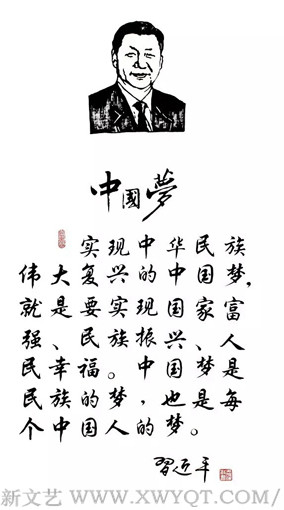 中國夢
实现中华民族
伟大复兴的中国梦，
就是要实现国家富
强、民族振兴、人
民幸福。中国梦是
民族的梦，也是每
个中国人的梦。
習近平
新文艺 WWW.XWYQT.COM/